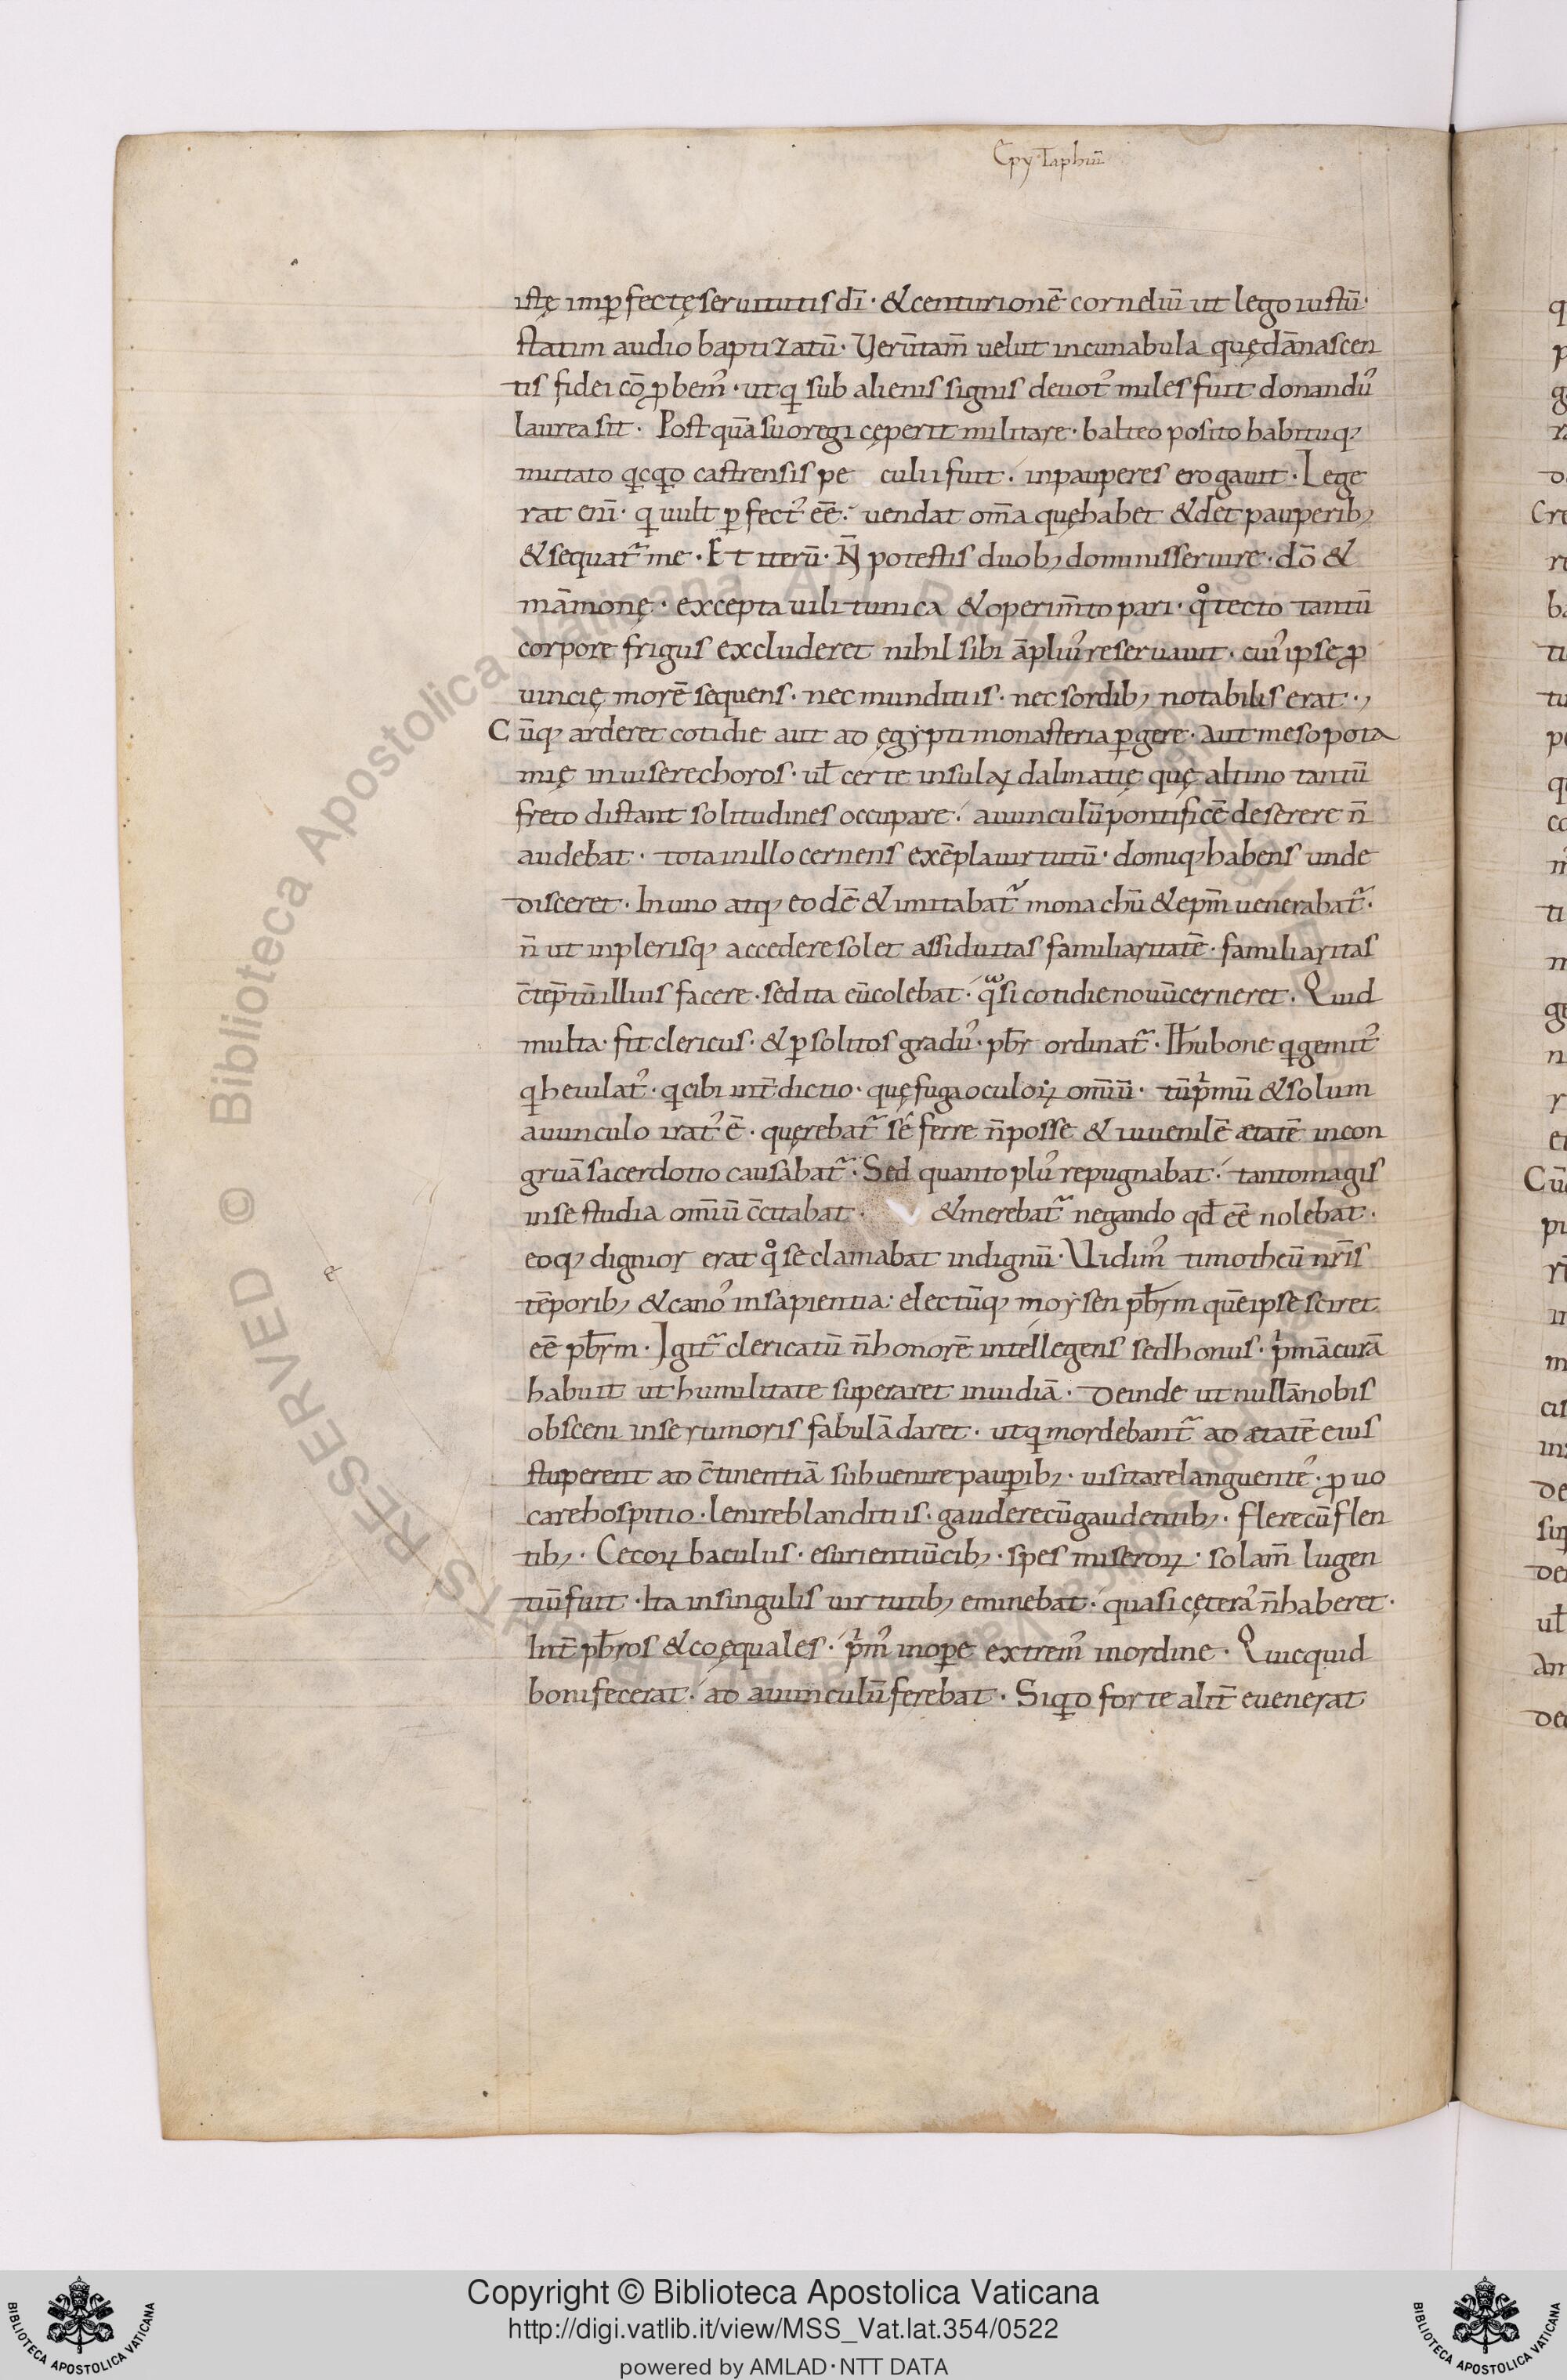 Epytaphiū
istę imp̄fectę seruitutis dī· & centurionē corneliū ut lego iustū·
statim audio baptizatū· Verūtam̄ uelut incunabula quędā nascen
tis fidei cōp̄bem᾽· ut q̣ sub alienis signis deuot᾽ miles fuit donand᾽
laurea sit· Postquā suo regi cęperit militare· balteo posito habituq;
mutato q̣cq̣d castrensis pe culii fuit· in pauperes erogauit· Lege
rat enī· q̣ uult p̄fect᾽ eē· uendat om̄a quę habet & det pauperib;
& sequat᷑ me· Et iterū· N̄ potestis duob; dominis seruire· dō &
māmonę· excepta uili tunica & operim̄to pari· qͦ tecto tantū
corpore frigus excluderet nihil sibi āpli᾽ reseruauit· cui᾽ ipse ꝓ
uincię morē sequens· nec munditiis· nec sordib; notabilis erat·,
Cūq; arderet cotidie aut ad ęgypti monasteria ꝑgere· aut mesopota
mię inuisere choros· ul̄ certe insulaꝝ dalmatię quę altino tantū
freto distant solitudines occupare· auunculū pontificē deserere n̄
audebat· tota in illo cernens exēpla uirtutū· domiq; habens unde
disceret· In uno atq; eodē & imitabat᷑ monachū & ep̄m uenerabat᷑·
n̄ ut in plerisq; accedere solet assiduitas familiaritatē· familiaritas
c̄tēptū illius facere· sed ita eū colebat· qͣsi cotidie nouū cerneret· Quid
multa· fit clericus· & ꝑ solitos grad᾽· pb̄r ordinat᷑· Ih̄u bone q̣ gemit᾽
q̣ heiulat᾽· q̣ cibi int̄dictio· quę fuga oculoꝝ omīū· tū pͥmū & solum
auunculo irat᾽ ē· quęrebat᷑ sē ferre n̄ posse & iuuenilē ætatē incon
gruā sacerdotio causabat᷑· Sed quanto pl᾽ repugnabat· tanto magis
in se studia omīū c̄citabat· & merebat᷑ negando qd̄ eē nolebat·
eoq; dignior erat qͦ se clamabat indignū· Vidim᾽ timotheū nr̄is
tēporib; & canos᾽ in sapientia: electūq; moysen pb̄rm quē ipse sciret
eē pb̄rm· Igit᷑ clericatū n̄ honorē intellegens sed honus· pͥmā curā
habuit ut humilitate superaret inuidiā· deinde ut nullā nobis
obsceni in se rumoris fabulā daret· ut q̣ mordebant᷑ ad ætatē eius
stuperent ad c̄tinentiā subuenire pauꝑib;· uisitare languente᾽· ꝓuo
care hospitio· lenire blanditiis· gaudere cū gaudentib;· flere cū flen
tib;· Cecoꝝ baculus· esurientiū cib;· spes miseroꝝ· solam̄ lugen
tiū fuit· Ita in singulis uirtutib; eminebat· quasi cętera᾽ n̄ haberet·
Int̄ pb̄ros & coęquales· pͥm᾽ in oꝑe extrem᾽ in ordine· Quicquid
boni fecerat· ad auunculū ferebat· Siq̣d forte alit̄ euenerat
Copyright © Biblioteca Apostolica Vaticana
http://digi.vatlib.it/view/MSS_Vat.lat.354/0522
powered by AMLAD·NTT DATA
BIBLIOTECA APOSTOLICA VATICANA
BIBLIOTECA APOSTOLICA VATICANA